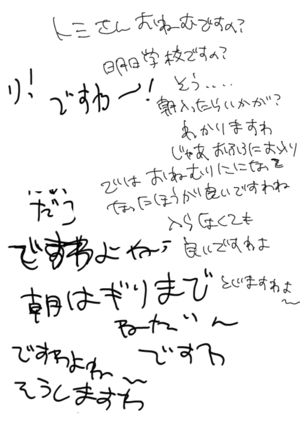 トミさんおねむですの?
明日学校ですの?
り!
ですわ〜!
そう....
朝入ったらいかが?
わかりますわ
じゃあ、おふろに
ではおねむりになって
なったほうが良いですわね
入らなくても
良いですわよ
ですわよね
朝はぎりまで
とじますわよ
ねたいん
ですわ
ですわよね〜
そうしますわ